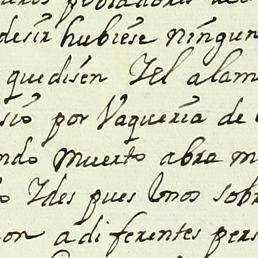 desir hubiese ningun
quedisen Y el alam
sio por Vaqueria de
ndo muerto abra m
Y des pues Unos sobr
on a di ferentes pers